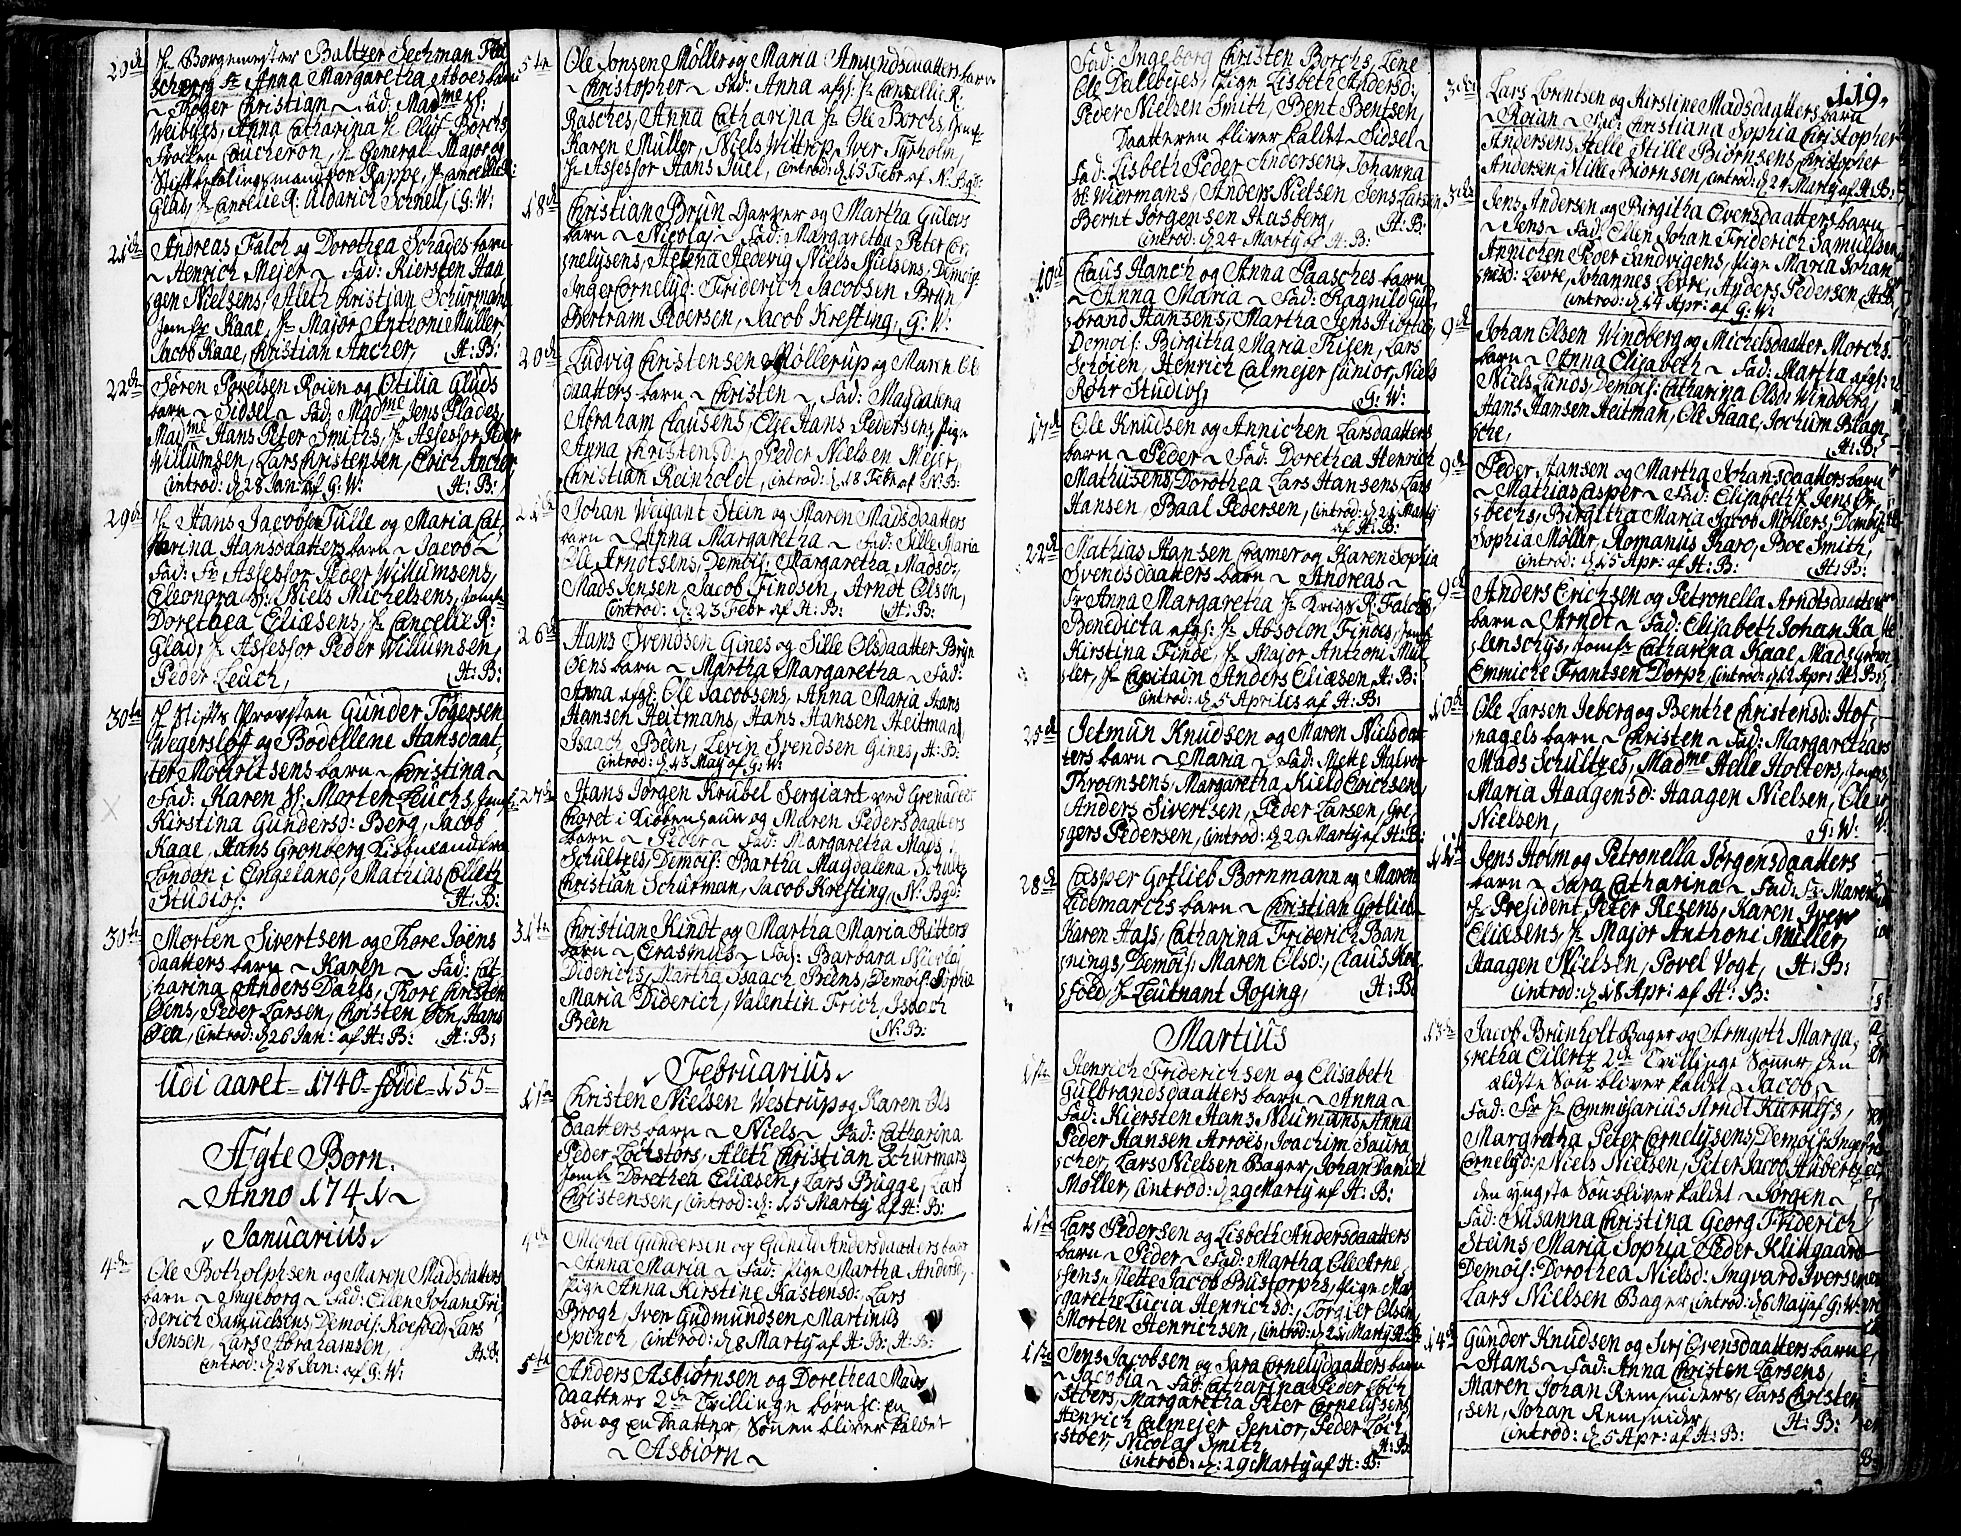 20de Hr Borgemester Baltzer Sechman Flei
scherg Fr Anna Margaretha Aboes barn
~ Thøger Christian ~ Fad: Madme Sl:
Weibyes, Anna Catharina Hr Oluf Borchs,
Frøiken Caucheron, Hr General-Major og
Stiftbefalingsmand von Rappe, Hr Cancellie R:
Glad, Hr Cancelie R: Uldarich Schnell, G: W:
21de Andreas Falch og Dorothea Schades barn
~ Henrich Mejer ~ Fad: Kiersten Haa
gen Nielsens, Aleth Christian Schurmans
Jomfr Kaae, Hr Major Anthoni Müller
Jacob Kaae, Christian Ancher, H: B:
22de Søren Povelsen Roien og Otilia Glads
barn ~ Sidsel ~ Fad: Madme Jens Plades,
Madme Hans Peter Smiths, Hr Assessor Peder
Willumsen, Lars Christensen, Erich Ancher
introd: d 28 Jan af G: W: H: B:
29de Hr Hans Jacobsen Tulle og Maria Cat,
harina Hansdaatters barn ~ Jacob ~
Fad: Fr Assessor Peder Willumsens,
Eleonora Sl: Niels Michelsens, Jomfr
Dorethea Eliæsens, Hr Cancelie R:
Glad, Hr Assessor Peder Willumsen,
Peder Leuch, H: B:
30te Hr Stifts Provsten Gunder Tøgersen
Wegersløff og Bodellene Hansdaat,
ter Modvitsens barn ~ Christina ~
Fad: Karen Sl: Morten Leuchs, Jomfr
Kirstina Gundersd: Berg, Jacob
Kaae, Hans Grønberg Kiøbmand
London i Engeland, Mathias Colleth
Studios: H: B:
30te Morten Sivertsen og Thore Jøens
daatters barn ~ Karen ~ Fad: Cat,
harina Anders Dahls, Thore Christen
Oens, Peder Larsen, Christen Oen, Hans
Oea, introd: d 26 Jan: af H: B: H: B:
Udi aaret = 1740 = fødde = 155 =
Ægte Børn.
~ Anno 1741 ~
Januarius.
4de Ole Botholphsen og Maren Madsdatters
barn ~ Ingeborg ~ Fad: Ellen Johan Fri,
derich Samuelsens, Demois: Roefoed, Lars
Jensen, Lars Abrahamsen, H: B:
introd: d 28 Jan: af G: W:
5te Ole Jonsen Møller og Maria Amundsdaatters barn
~ Christopher ~ Fad: Anna afgl: Hr Cancellie R:
Rasches, Anna Catharina Hr Ole Borchs, Jomfr
Karen Müller, Niels Wittrop, Iver Tyrholm,
Hr Assessor Hans Juel, introd: d 15 Febr af N. Bgd:
18de Christian Brun Garver og Martha Gulovs
barn ~ Nicolaj ~ Fad: Margaretha Peter Cor,
nelysens, Helena Hedevig Niels Nielsens, Demois:
Inger Cornelyd: Friderich Jacobsen Brun
Bertram Pedersen, Jacob Kresting, G: W:
20de Ludvig Christensen Møllerup og Maren Ols
daatters barn ~ Christen ~ Fad: Magdalena
Abraham Clausens, Else Hans Pedersens, Pige
Anna Christensd: Peder Nielsen Mejer,
Christian Reinholdt, introd: d 18 Febr af N: B:
21de Johan Weigant Stein og Maren Madsdaatters
barn ~ Anna Margaretha ~ Fad: Sille Maria
Ole Arndtsens, Demois: Margaretha Madsd:
Mads Jensen Jacob Findsen, Arndt Olsen,
introd: d 23 Febr af H: B: H: B:
26de Hans Svendsen Gines og Sille Olsdaatter Bryn
Oens barn ~ Martha Margaretha ~ Fad:
Anna afgl: Ole Jacobsens, Anna Maria Hans
Hansen Heitmans, Hans Hansen Heitman,
Isaach Been, Levin Svendsen Gines, H: B:
introd: d 13 May af G: W:
27de Hans Jørgen Krubel Sergiant ved Grenadeer
Coret i Kiøbenhaun og Maren Pedersdaatters
barn ~ Peder ~ Fad: Margaretha Mads
Schultzes, Demois: Bartha Magdalena Schultz
Christian Schurman, Jacob Kresting, N: Bgd:
31te Christian Kindt og Martha Maria Ritters
barn ~ Erasmus ~ Fad: Barbara Nicolai
Diderichs, Martha Isaach Beens, Demois: Sophia
Maria Diderich, Valentin Frich, Isaach
Been N: B:
Februarius.
1te Christen Nielsen Westrup og Karen Ols
daatters barn ~ Niels ~ Fad: Catharina
Peder Lochstørs, Aleth Christian Schurmans
Jomfr Dorothea Eliæsen, Lars Brügge, Lars
Christensen, introd: d: 15 Marty af H: B:
4de Michel Gundersen og Gunild Andersdaatters barn
~ Anna Maria ~ Fad: Pige Martha Andersd,
Pige Anna Kirstine Kastensd: Lars
Brogh, Iver Gudmundsen, Martinus
Spinch, introd: d 8 Marty af H: B: H: B:
5te Anders Asbiørnsen og Dorethea Mads
daatters 2de Tvillinge børn sc: en
Søn og en Daatter, Sønen bliver kaldet
~ Asbiørn ~
Fad: Ingeborg Christen Borchs, Lene
Ole Dallebyes, Pige Lisbeth Andersd:
Peder Nielsen Smith, Bent Bentsen,
Daatteren bliver kaldet ~ Sidsel ~
Fad: Lisbeth Peder Andersens Johanna
St Wiermans, Anders Nielsen Jens Larsen
Bernt Jørgensen Aasberg, H: B:
introd: d 24 Marty af H: B:
10de Claus Hanch og Anna Paasches barn
~ Anna Maria ~ Fad: Ragnild Gul,
brand Hansens, Martha Jens Hiortes
Demois: Birgitha Maria Thisen, Lars
Scroien, Henrich Calmejer Junior, Niels
Rohr Studios, G: W:
17de Ole Knudsen og Annichen Larsdaatters
barn ~ Peder ~ Fad: Dorethea Henrich
Mathisens, Dorothea Lars Hansens Lars
Hansen, Baal Pedersen, introd: d 21 Marty
af H: B:
22de Mathias Hansen Cramer og Karen Sophia
Svendsdaatters barn ~ Andreas ~
Fr Anna Margaretha Hr Krigs R: Falchs,
Benedicta afgl: Hr Absolon Findes, Jomfr
Kirstina Finde, Hr Major Anthoni Mül
ler, Hr Capitain Anders Eliæsen, H: B:
introd: d 5 Aprilis af H: B:
25de Jetmun Knudsen og Maren Nielsdaat
ters barn ~ Maria ~ Fad: Mette Halvor
Throensens, Margaretha Kield Erichsens
Anders Sivertsen, Peder Larsen, Gre,
gers Pedersen, introd: d 29 Marty af H: B:
28de Casper Gotlieb Bornmann og Maren
Lidemarchs barn ~ Christian Gotlieb ~
Karen Hass, Catharina Friderich Ban
nings, Demois: Maren Olsd:, Claus Roe
foed, Hr Leutnant Rosing, H: B:
Martius
1te Henrich Friderichsen og Elisabeth
Gulbrandsdaatters barn ~ Anna ~
Fad: Kiersten Hans Neumans, Anna
Peder Hansen Arroes, Joachim Saura
scher, Lars Nielsen Bager, Johan Daniel
Møller, introd: d 29 Marty af H: B:
1te Lars Pedersen og Lisbeth Andersdaatters
barn ~ Peder ~ Fad: Martha Ole Arne,
sens, Mette Jacob Bustorphs, Pige Mar
garethe Lucia Henrichsd:, Torgier Olsen,
Morten Henrichsen, introd: d 21 Marty H: B:
1te Jens Jacobsen og Sara Cornelysdaatters barn
~ Jacobia ~ Fad: Catharina Peder Loch
støers, Margaretha Peter Cornelysens
Henrich Calmejer Senior, Peder Loch
støer, Nicolaj Smith, H: B:
introd: d: 29 Marty af H: B:
119.
3die Lars Lorentsen og Kirstine Madsdaatters barn
~ Roian ~ Fad: Christiana Sophia Christopher
Andersens Hille Stille Biørnsens, Christopher
Andersen, Stille Biørnsen, introd: d 24 Marty af H: B:
3die Jens Andersen og Birgitha Evensdaatters barn
~ Jens ~ Fad: Ellen Johan Friderich Samuelsen
Annichen Peder Sandvigens, Pige Maria Johan
nesd: Levre, Johannes Levre, Anders Pedersen, H: B:
introd: d 14 Apr: af G: W:
9de Johan Olsen Windberg og Michelsdaatter Morchs
barn ~ Anna Elisabeth ~ Fad: Martha afgl:
Niels Lunds, Demois: Catharina Olsd: Windberg,
Hans Hansen Heitman, Ole Kaae, Jochum Blan
sche, H: B:
9de Peder Hansen og Martha Johansdaatters barn
~ Mathias Casper ~ Fad: Elisabeth Hr Jens Ør
bechs, Birgitha Maria Jacob Møllers, Demois:
Sophia Møller, Romanus Karo, Boe Smith,
introd: d 15 Apr: af H: B: H: B:
9de Anders Erichsen og Petronella Arndtsdaatters
barn ~ Arndt ~ Fad: Elisabeth Johan Ka
lenschys, Jomfr Catharina Kaae Mads Grøn
Emmiche Frantsen Dorph, introd: d 12 Apr: H: B:
10de Ole Larsen Jeberg og Benthe Christensd: Hof,
nagels barn ~ Christen ~ Fad: Margaretha
Mads Schultzes, Madme Helle Holters, Jomfr
Maria Haagensd: Haagen Nielsen, Ole
Nielsen, G: W:
11te Jens Holm og Petronella Jørgensdaatters
barn ~ Sara Catharina ~ Fad: Fr Maren
Hr President Peter Resens, Karen Iver
Eliæsens, Hr Major Anthoni Müller,
Haagen Nielsen, Povel Vogt, H: B:
introd: d 18 Apr: af H: B:
13de Jacob Brunholt Bager og Armgoth Marga,
retha Eilertz 2de Tvillinge Sønner, den
ældste Søn bliver kaldet ~ Jacob ~
Fad: Fr Hr Commisarius Arndt Kurulfs,
Margretha Peter Cornelysens, Demois: Inger
Cornelyd: Niels Nielsen, Peter Jacob Hubertz,
den yngste Søn bliver kaldet ~ Jørgen ~
Fad: Susanna Christina Georg Friderich
Steins, Maria Sophia Peder Klitgaard
Demois: Dorothea Nielsd: Ingvard Iversen
Lars Nielsen Bager introd: d 6 May af G: W:
14de Gunder Knudsen og Siri Evensdaatters barn
~ Hans ~ Fad: Anna Christen Larsens,
Maren Johan Remsniders, Lars Christen
sen, Johan Remsnider, H: B:
introd: d 5 Apr: af H: B: